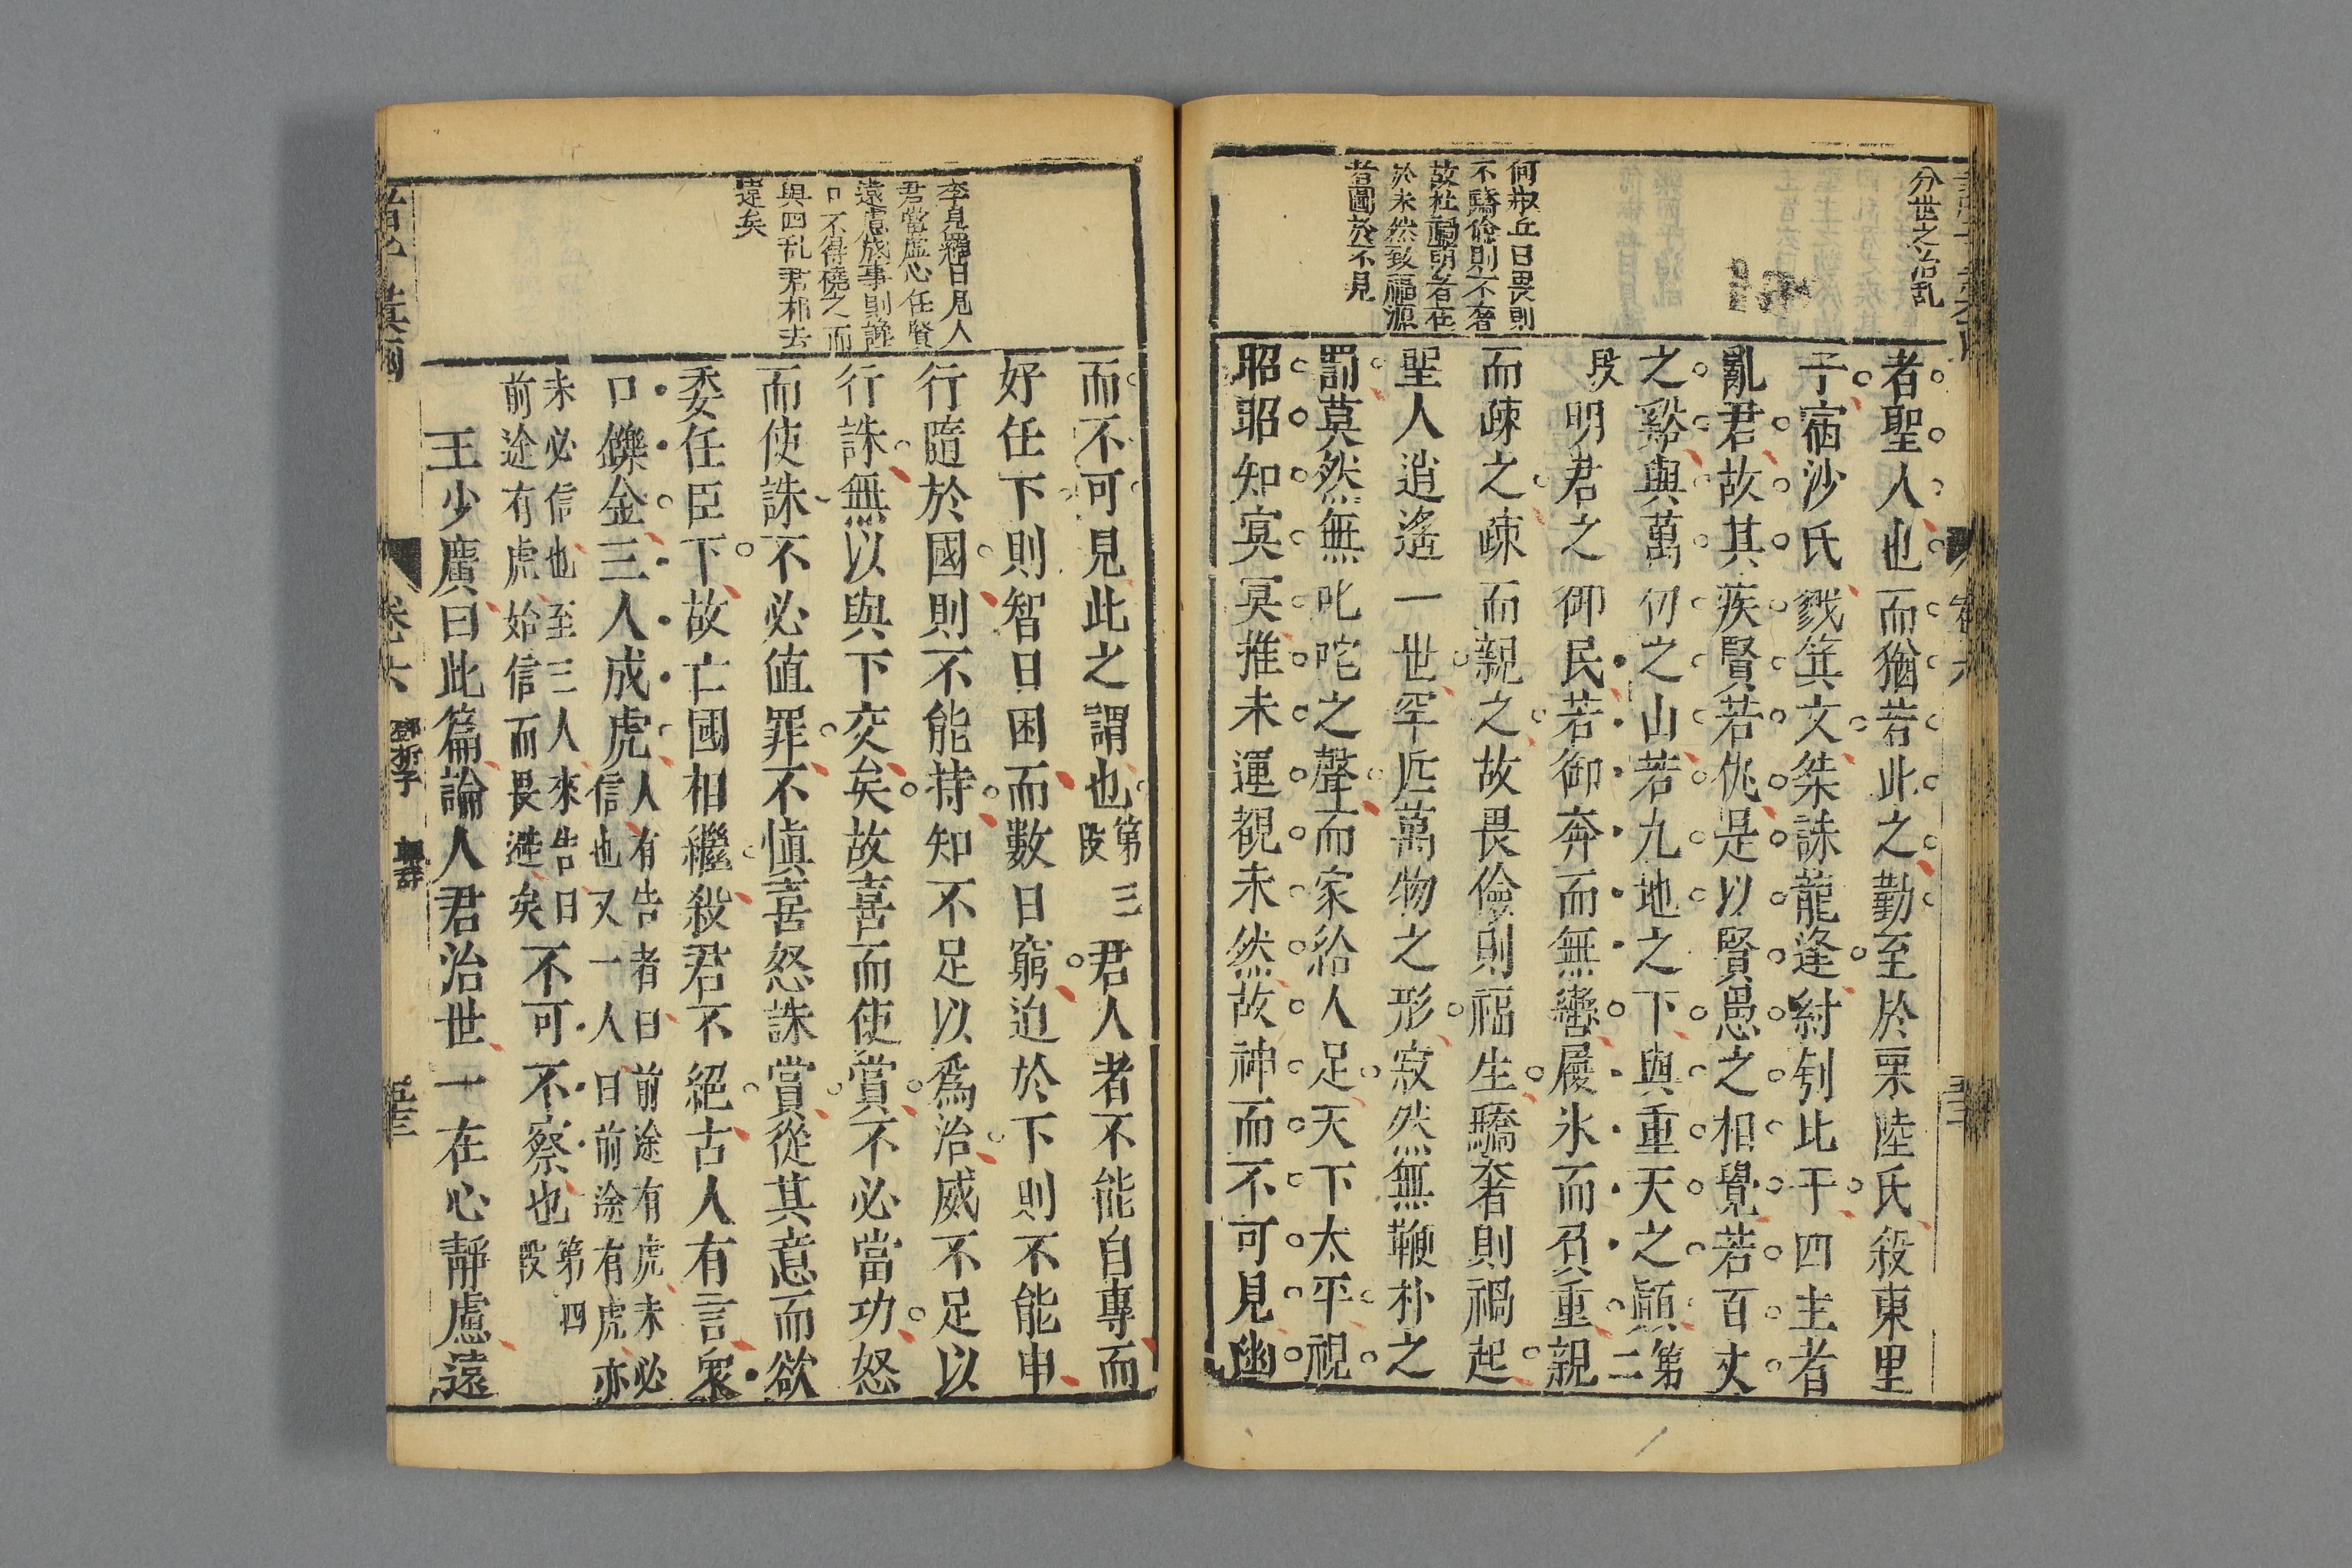 分世之治乱
何叔丘曰畏則
不驕儉則不奢
故杜禍萌者在
於未然致福源
者圖於不見
者聖人也而猶若此之勤至於栗陸氏殺東里
子宿沙氏戮箕文桀誅龍逢紂刳比干四主者
亂君故其疾賢若仇是以賢愚之相覺若百丈
之谿與萬仞之山若九地之下與重天之顛第二
段明君之御民若御奔而無轡履氷而負重親
而疎之疎而親之故畏儉則福生驕奢則禍起
聖人逍遙一世罕匹萬物之形寂然無鞭朴之
罰莫然無叱咤之聲而家給人足天下太平視
昭昭知㝠㝠推未運覩未然故神而不可見幽
李見羅曰見人
君當虛心任賢
遠慮成事則讒
口不得磽之而
與四乱君相去
違矣
而不可見此之謂也第三段君人者不能自專而
好任下則智日困而數日窮迫於下則不能申
行隨於國則不能持知不足以爲治威不足以
行誅無以與下交矣故喜而使賞不必當功怒
而使誅不必値罪不慎喜怒誅賞從其意而欲
委任臣下故亡國相繼殺君不絕古人有言衆
口鑠金三人成虎人有告者曰前途有虎未必
信也又一人曰前途有虎亦
未必信也至三人來告曰
前途有虎始信而畏避矣不可不察也第四段
王少廣曰此篇論人君治世一在心靜慮遠
卷六
鄧析子